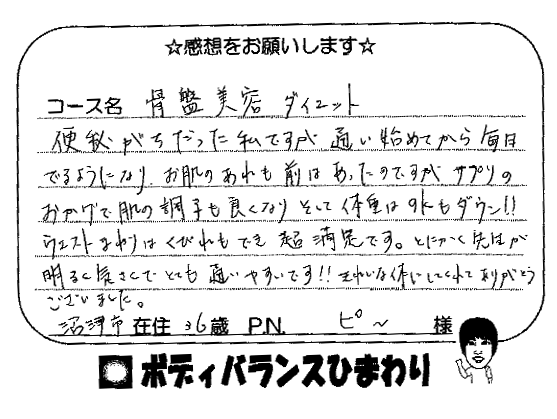 ☆感想をお願いします☆
コース名 骨盤美容ダイエット
便秘がちだった私ですが通い始めてから毎日
でるようになり、お肌のあれも前はあったのですがサプリの
おかげで肌の調子も良くなり そして体重は9kもダウン!!
ウエストまわりはくびれもでき超満足です。とにかく先生が
明るく気さくでとても通いやすいです!! きれいな体にしてくれてありがとう
ございました。
沼津市 在住 36歳 P.N. ピ〜 様
ボディバランスひまわり